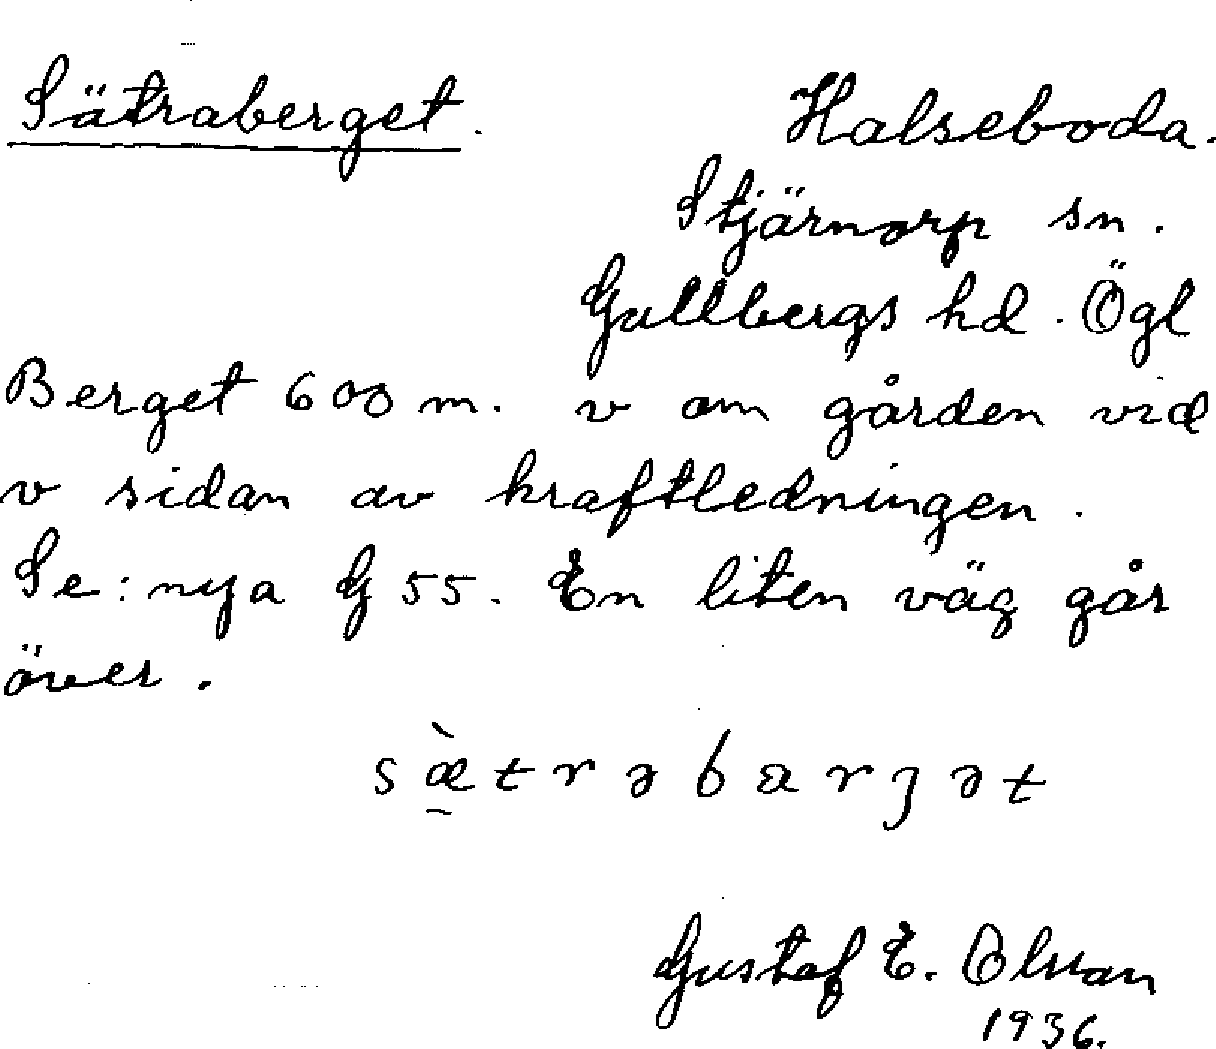 Sätraberget. Halseboda.
Stjärnorp sn.
Gullbergs hd. Ögl
Berget 600 m. v om gården vid
v sidan av kraftledningen.
Se: nya G 55. En liten väg går
över.
sæ̀trəbarȷət
Gustaf E. Olsson
1936.